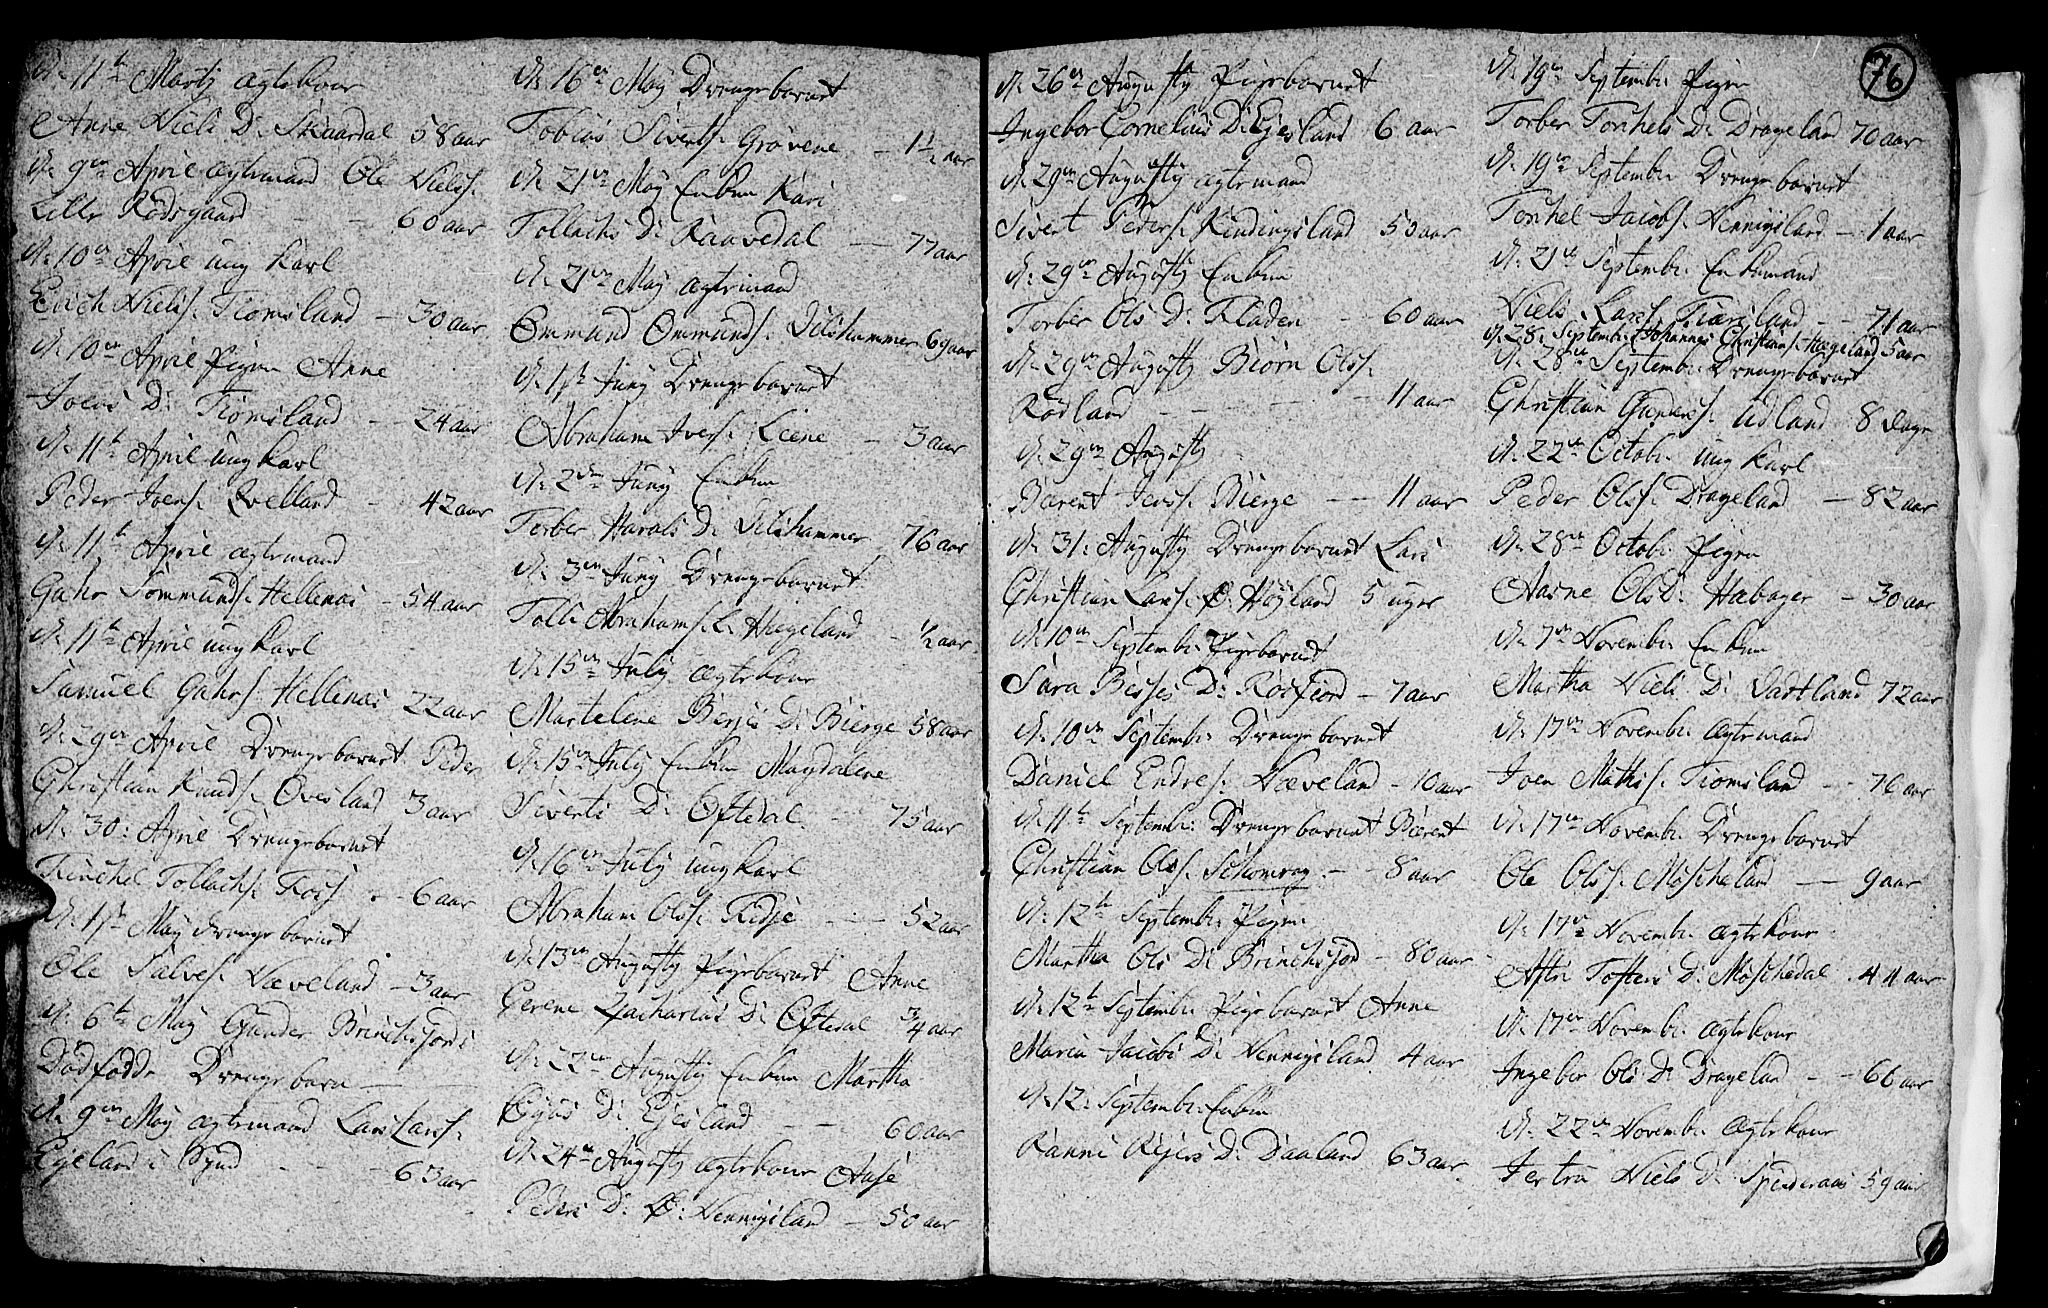 d. 11te Martj ægtekone
Anne Niels D: Skaardal 58 aar
d. 9en April ægtemand Ole Niels.
Lille Rødsgaard - - 60 aar
d. 10en April ung Karl
Erich Niels. Tiomsland - 30 aar
d. 10en April Pigen Anne
Joens D: Tiomsland - 24 aar
d. 11te April ung Karl
Peder Joens. Qvelland - 42 aar
d. 11te April ægtemand
Gahr Sømmunds. Hellenæs - 54 aar
d. 11te April ung Karl
Samuel Gahrs. Hellenæs 22 aar
d. 29en April Drengebarnet Peder
Christian Knuds. Øvesland 3 aar
d. 30: April Drengebarnet
Tollachs. - 6 aar
d. 1ste May drengebarnet
Ole Salves. Næveland - 3 aar
d. 6te May Gunder Brinchsjords
Dødfødde Drengebarn -
d. 9en May ægtemand Lars Lars.
Egeland i Synd - - 63 aar
d. 16en May Drengebarnet
Tobias Siverts. Grovene - 1½ aar
d. 21en May Enken Kari
Tollachs D: Raavedal - 77 aar
d. 21en May ægtemand
Ommund Ommunds. 69 aar
d. 1ste Junj Drengebarnet
Abraham Ivers. Leene - 3 aar
d. 2den Junj Enken
Torber Harals D: 76 aar
d. 3en Junj Drengebarnet
Tolli Abrahams. L. Hægeland - ½ aar
d. 15en Julij ægtekone
Martelene Berjes D: Bierge 58 aar
d. 15en Julij Enken Magdalene
Siverts D: Øftedal - 75 aar
d. 16en Julij ung Karl
Abraham Ols. Kidsie - 52 aar
d. 13en Augustj Pigebarnet Anne
Gerene Zacharias D: Øftedal ¾ aar
d. 22en Augustj Enken Martha
D: Egesland - - 60 aar
d. 24en Augustj ægtekone Aase
Peders D: Ø: Nennigsland - 50 aar
76
d. 26en Augustj Pigebarnet
Ingebor Cornelius D: Egesland 6 aar
d. 29en Augustj ægtemand
Sivert Peders. Kindingsland 50 aar
d. 29en Augustj Enken
Torber Ols D: Kladen - 60 aar
d. 29en Augustj Biørn Ols.
Rødland - - - - 11 aar
d. 29en Augustj
Bærent Bierge - - 11 aar
d. 31: Augustj Drengebarnet Lars
Christian Lars. Ø: Høyland 5 uger
d. 10en Septembr: Pigebarnet
Sara D: Rosfiord - 7 aar
d. 10en Septembr: Drengebarnet
Daniel Endres. Næveland - 10 aar
d. 11te Septembr: Drengebarnet Bærent
Christian Ols. - 8 aar
d. 12te Septembr: Pigen
Martha Ols D: Brinchsjord - 80 aar
d. 12te Septembr: Pigebarnet Anne
Maria Jacobs D: Nennigsland 4 aar
d. 12: Septembr: Enken
Ranni D: Daaland 63 aar
d. 19en Septembr: Pigen
Torber Torchels D: Drageland 70 aar
d. 19en Septembr: Drengebarnet
Torchel Jacobs. Nennigsland - 1 aar
d. 21te Septembr: Enkemand
Niels Lars. - - 71 aar
d. 28: Septembr: Johannes Christians. Hægeland 5 aar
d. 28en Septembr: Drengebarnet
Christian Gunders. Udland 8 dage
d. 22en Octobr: ung Karl
Peder Ols. Drageland - 82 aar
d. 28en Octobr: Pigen
Aasne Ols D: Habager - 30 aar
d. 7en Novembr: Enken
Martha Niels D: Vadtland 72 aar
d. 17en Novembr: ægtemand
Joen Mathis. Tiomsland - - 76 aar
d. 17en Novembr: Drengebarnet
Ole Ols. Moscheland - 9 aar
d. 17en Novembr: ægtekone
Astri D: Moschedal - 44 aar
d. 17en Novembr: ægtekone
Ingebor Ols D: Drageland - - 66 aar
d. 22en Novembr: ægtekone
Jertru Niels D: 59 aar